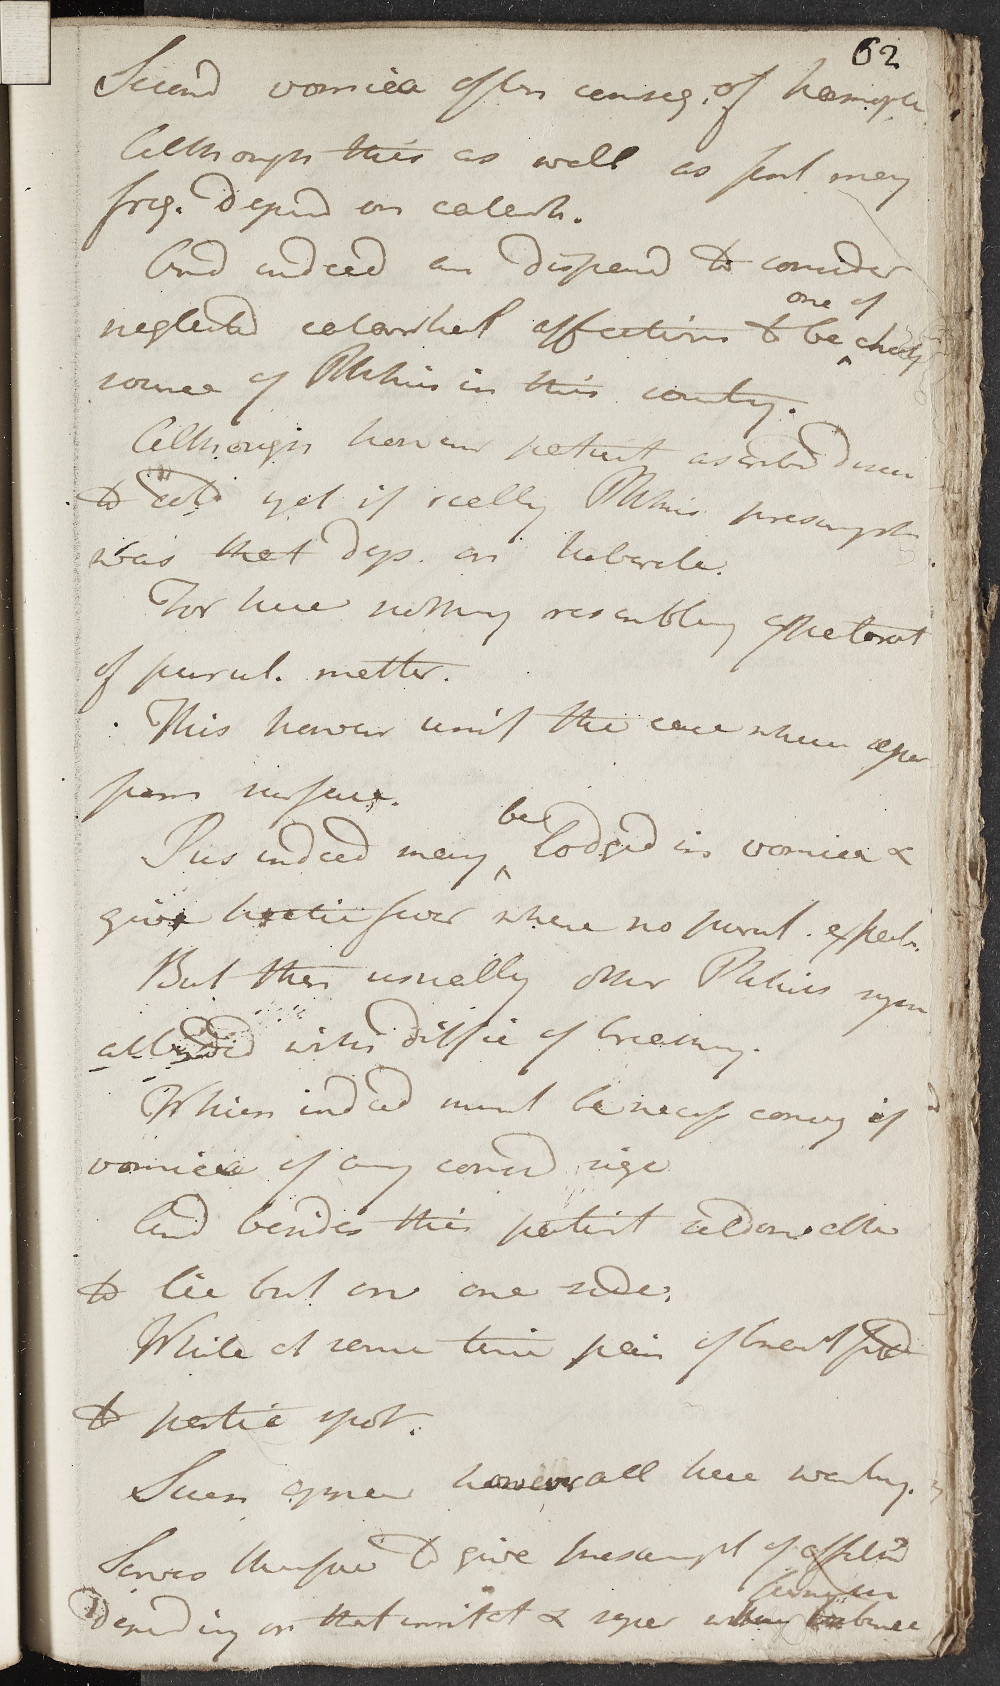 62
Second vomica often conseq. of hemopt.
Although this as well as first may
freq. Depend on catarrh.
And indeed am Disposed to consider
neglected catarrhal affections to be one of chief
source of Phthisis in this country.
Although however patient ascribed Disease
to cold yet if really Phthisis presumpt
was that dep. on tubercle.
For here nothing resembling expectorat
of purul. matter.
This however until the case when
from
Pus indeed may be lodged in vomica &
give hectic fever where no purul. expect.
But then usually other Phthisis sym
attended with diffic of breathing.
Which indeed must be necess conseq if
vomica of any consid size
And besides this patient seldom able
to lie but on one side.
While at same time pain of breast fixed
to partic spot.
Such appear however all here wanting.
Serves therefore to give presumpt of affect
Depending on that